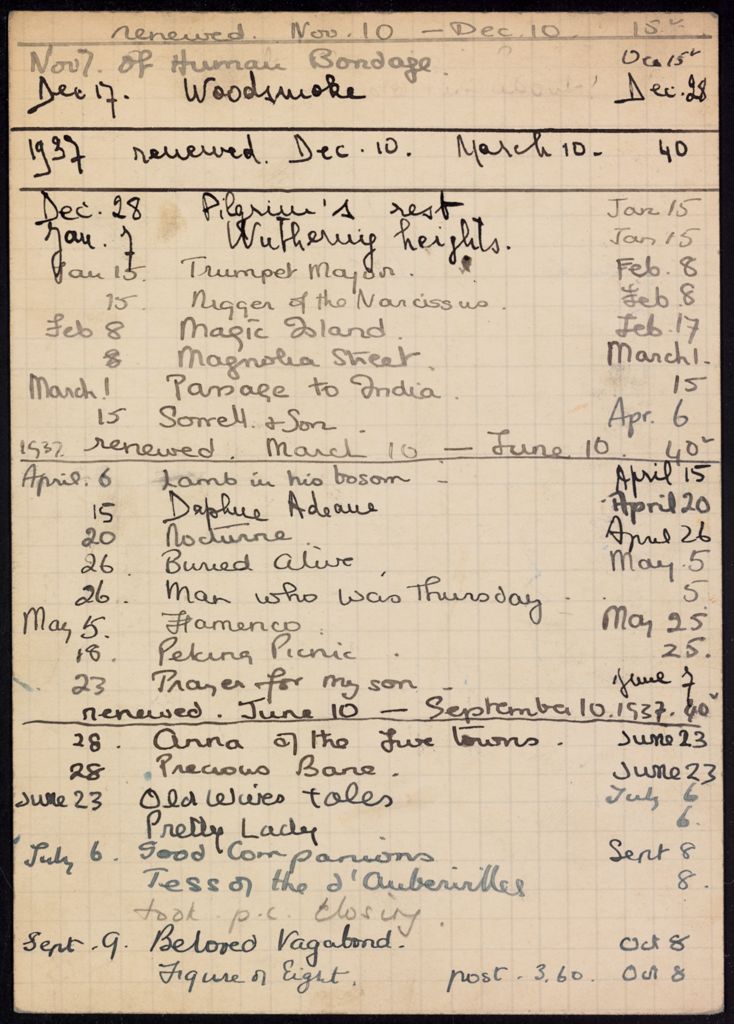 renewed. Nov. 10 – Dec. 10. 15
Nov 7. Of Human Bondage. Dec 15
Dec 17. Woodsmoke Dec. 28
1937 renewed. Dec. 10. March 10 - 40
Dec. 28 Pilgrim's rest Jan 15
Jan. 7 Wuthering heights. Jan 15
Jan 15. Trumpet Major. Feb. 8
15. Nigger of the Narcissus. Feb 8
Feb 8 Magic Island. Feb. 17
8 Magnolia Street. March 1.
March 1 Passage to India. 15
15 Sorrell & Son. Apr. 6
1937. renewed. March 10 – June 10. 40
April. 6 Lamb in his bosom - April 15
15 Daphne Adeane April 20
20 Nocturne. April 26
26. Buried Alive. May. 5
26. Man who was Thursday. 5.
May 5. Flamenco. May 25
18. Peking Picnic. 25.
23 Prayer for my son - June 7
renewed. June 10 – September 10. 1937. 40
28. Anna of the five towns. June 23
28 Precious Bane. June 23
June 23 Old Wives tales July 6
Pretty Lady 6.
July 6. Good Companions Sept 8
Tess of the d'Uubervilles 8.
took p.c. closing.
Sept. 9. Beloved Vagabond. Oct 8
Figure of Eight. post - 3.60. Oct 8